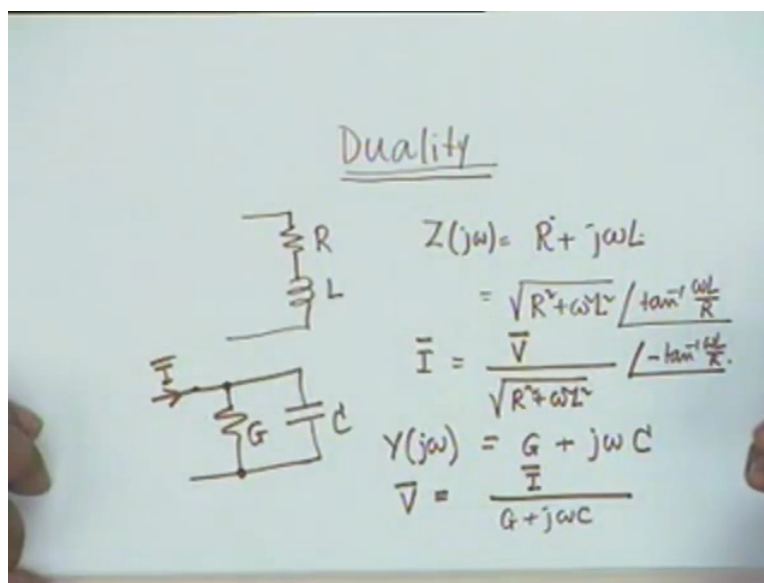 Duality
R
L
Z(jω) = R + jωL
= √R²+ω²L² /tan⁻¹ ωL/R
I̅ = V̅/√R²+ω²L² /-tan⁻¹ ωL/R.
I̅
G
C
Y(jω) = G + jωC
V̅ = I̅/G+jωC